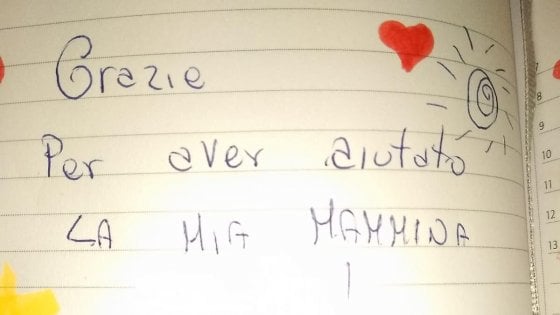 Grazie
Per aver aiutato
LA MIA MAMMINA
7
8
9
10
11
12
13